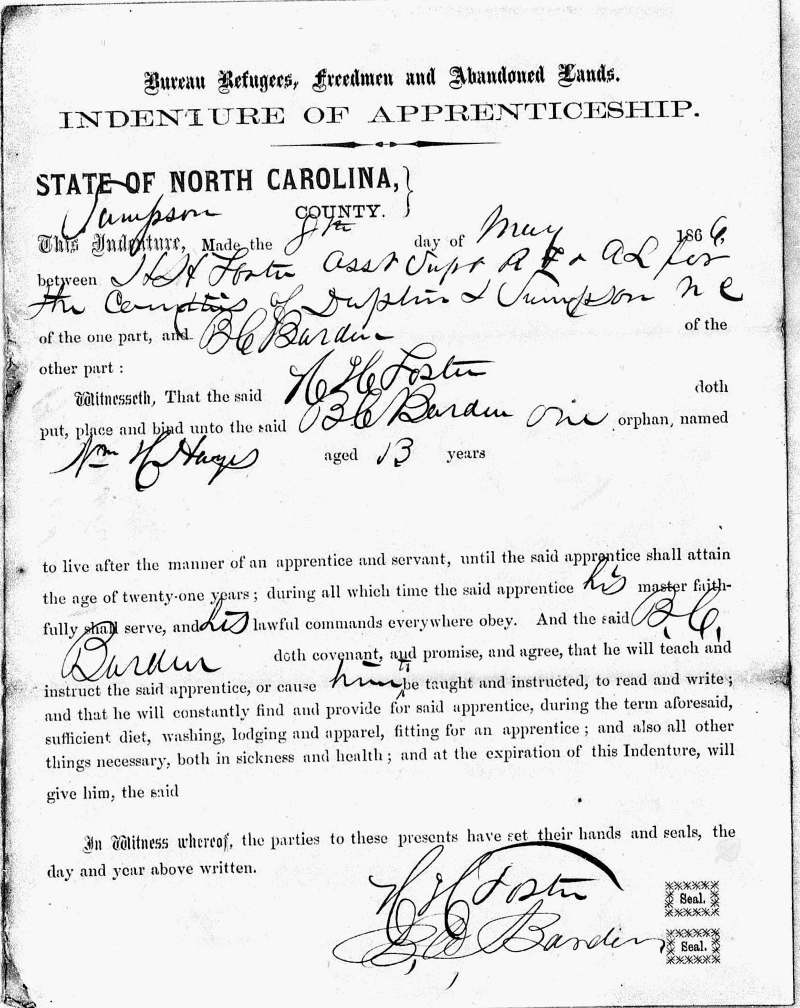 Bureau Refugees, Freedmen and Abandoned Lands.
INDENTURE OF APPRENTICESHIP.
STATE OF NORTH CAROLINA,
Sampson COUNTY.
This Indenture, Made the 8th day of May 1866,
between H H Foster Asst Supt R F & A L for
the Counties of Duplin & Sampson N C
of the one part, and B C Barden of the
other part :
Witnesseth, That the said H H Foster doth
put, place and bind unto the said B C Barden one orphan, named
Wm H Hayes aged 13 years
to live after the manner of an apprentice and servant, until the said apprentice shall attain
the age of twenty-one years ; during all which time the said apprentice his master faith-
fully shall serve, and his lawful commands everywhere obey. And the said B. C.
Barden doth covenant, and promise, and agree, that he will teach and
instruct the said apprentice, or cause him to be taught and instructed, to read and write ;
and that he will constantly find and provide for said apprentice, during the term aforesaid,
sufficient diet, washing, lodging and apparel, fitting for an apprentice ; and also all other
things necessary, both in sickness and health ; and at the expiration of this Indenture, will
give him, the said
In Witness whereof, the parties to these presents have set their hands and seals, the
day and year above written.
H H Foster Seal.
B, C, Barden Seal.